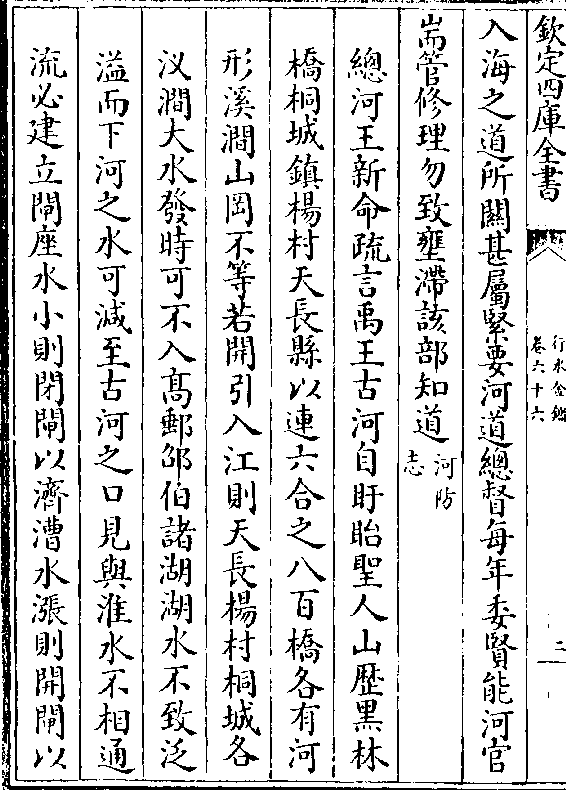 欽定四庫全書
行水金鑑
卷六十六
二
入海之道所關甚屬緊要河道總督每年委賢能河官
耑管修理勿致壅滯該部知道
河防
志
總河王新命疏言禹王古河自盱眙聖人山歴黒林
橋桐城鎮楊村天長縣以連六合之八百橋各有河
形溪澗山岡不等若開引入江則天長楊村桐城各
汊澗大水發時可不入髙郵邵伯諸湖湖水不致泛
溢而下河之水可減至古河之口見與淮水不相通
流必建立閘座水小則閉閘以濟漕水漲則開閘以